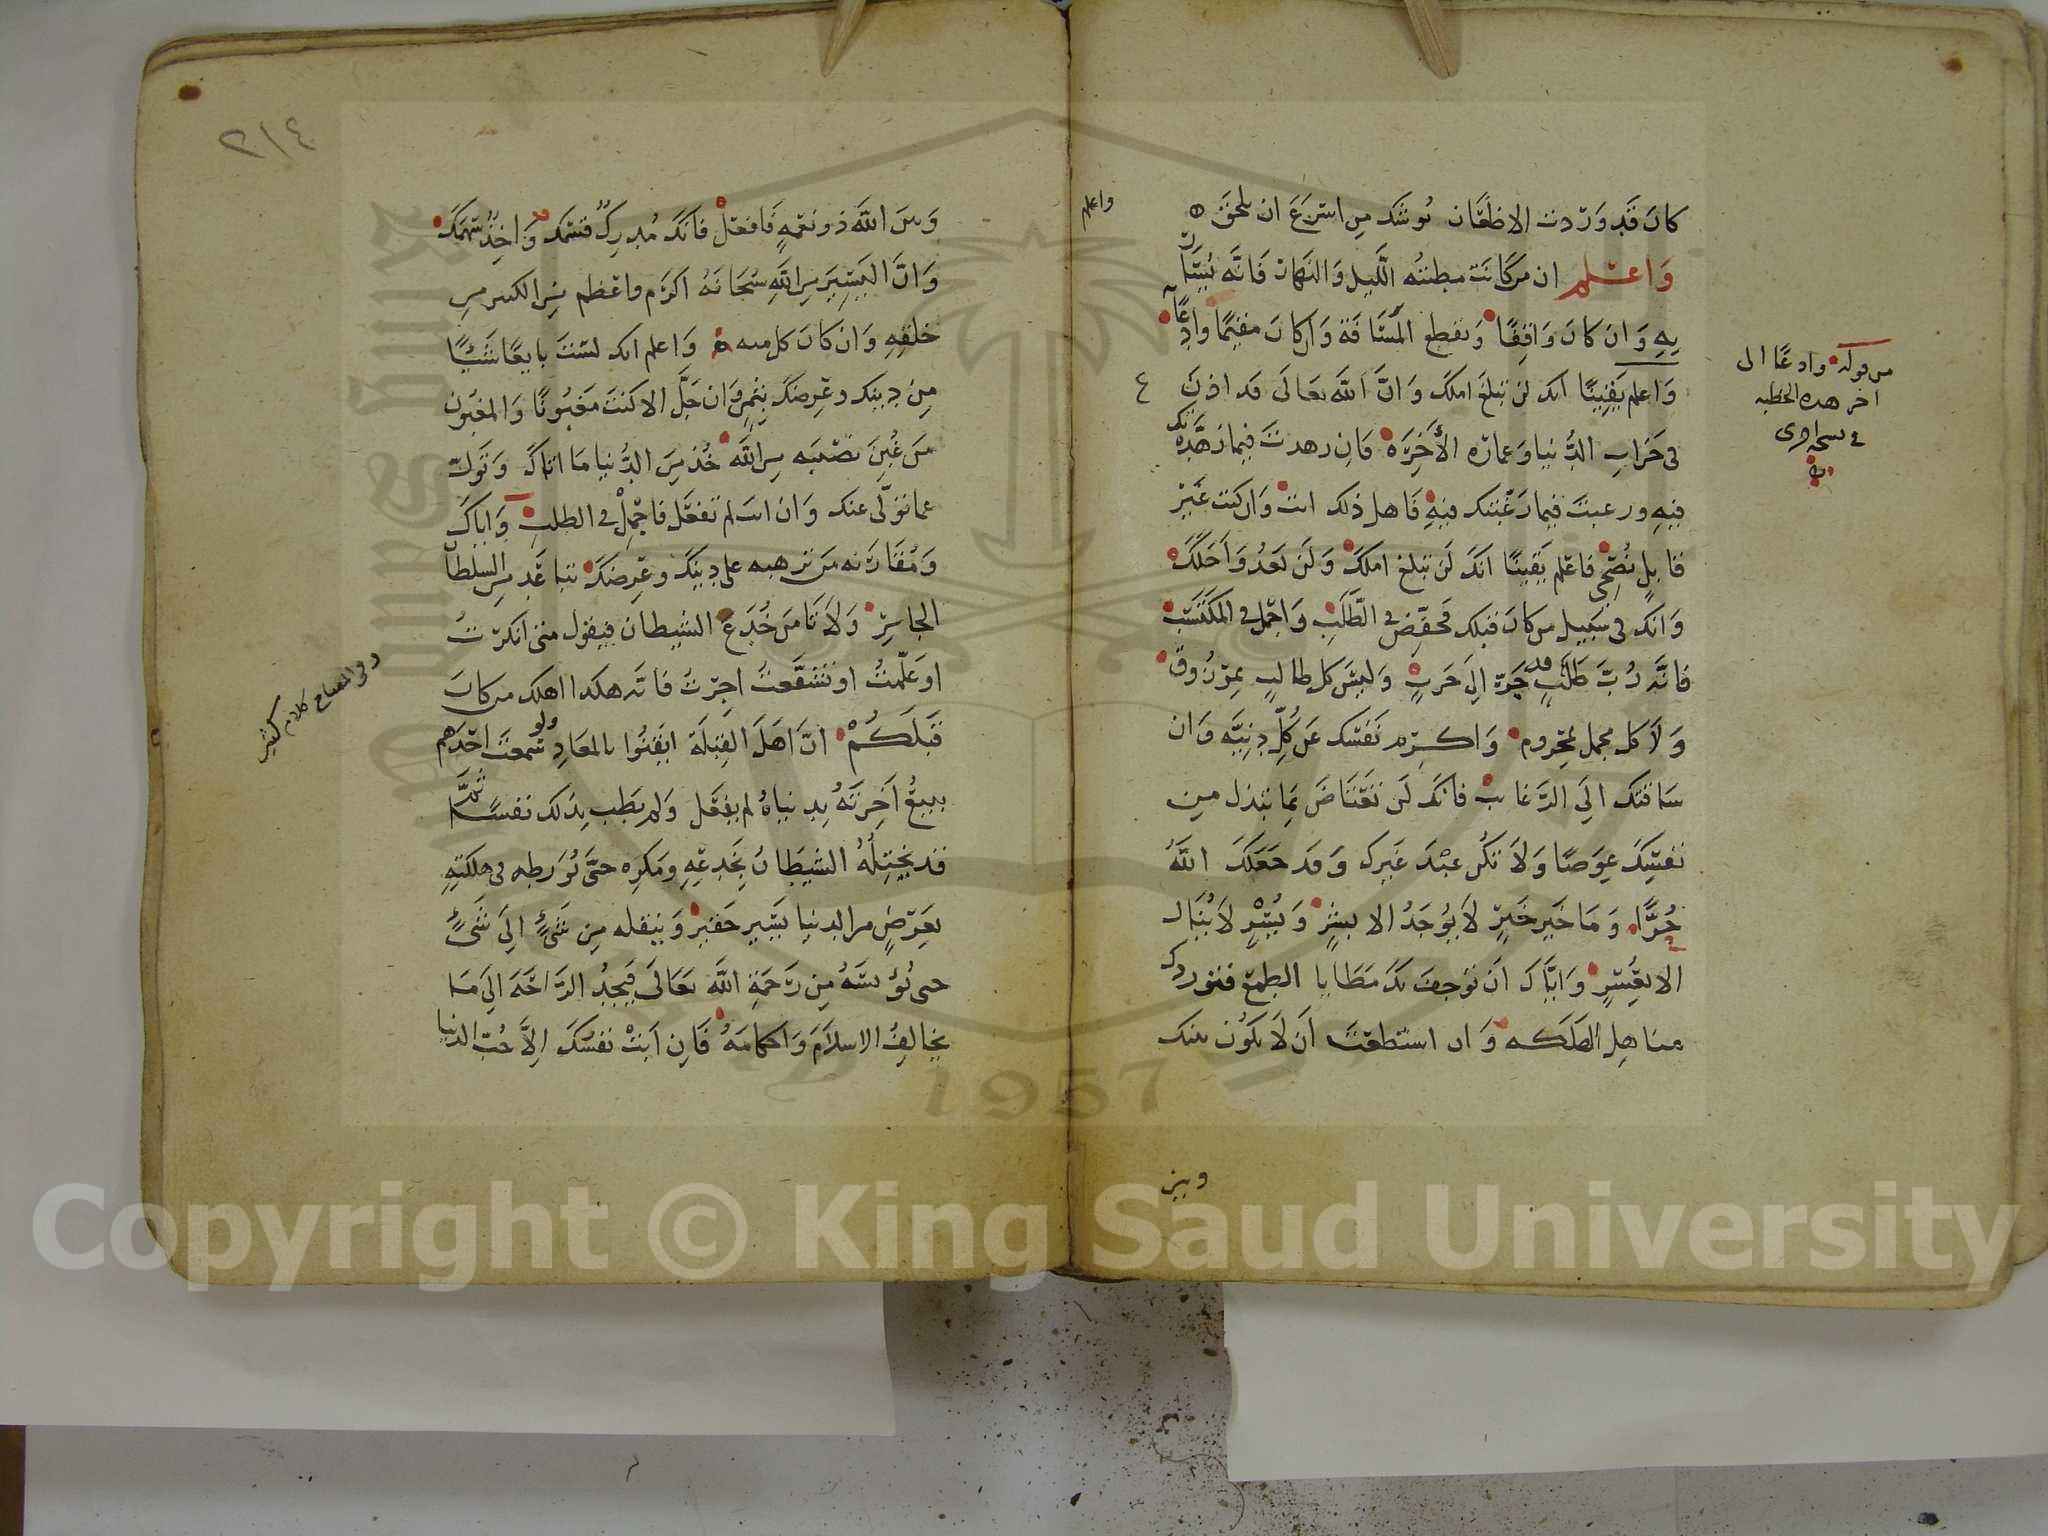 كان قد وردت الاظعان يوشك من اسرع ان يلحق
واعلم ان من كانت مطيته الليل والنهار فانه يسار
به وان كان واقفا ويقطع المسافة وان كان مقيما وادعا
واعلم يقينا انك لن تبلغ املك وان الله تعالى قد اذن
في خراب الدنيا وعمارة الاخرة فان زهدت فيما زهدتك
فيه ورغبت فيما رغبتك فيه فاهل ذلك انت وان كنت غير
قابل نصحي فاعلم يقينا انك لن تبلغ املك ولن تعدوا اجلك
وانك في سبيل من كان قبلك فخفض في الطلب واجمل في المكتسب
فانه رب طلب قد جر الى حرب وليس كل طالب بمرزوق
ولا كل مجمل بمحروم واكرم نفسك عن كل دنية وان
ساقتك الى الرغائب فانك لن تعتاض بما تبذل من
نفسك عوضا ولا تكن عبد غيرك وقد جعلك الله
حرا وما خير خير لا يوجد الا بشر ويسر لا ينال
الا بعسر واياك ان توجف بك مطايا الطمع فتوردك
مناهل الهلكه وان استطعت ان لا يكون بينك
وبين
من قوله وادعا الى
اخر هذه الخطبه
في نسخه اخرى
واعلم
٢١٤
وبين الله ذو نعمه فافعل فانك مدرك قسمك واخذ سهمك
وان اليسير من الله سبحانه اكرم واعظم من الكثير من
خلقه وان كان كل منه واعلم انك لست بايعا شيئا
من دينك وعرضك بثمن وان جل الا كنت مغبونا والمغبون
من غبن نصيبه من الله خذ من الدنيا ما اتاك وتول
عما تولى عنك وان انت لم تفعل فاجمل في الطلب واياك
ومقاربه من ترهبه على دينك وعرضك تباعد من السلطان
الجائر ولا تامن خدع الشيطان فيقول متى انكرت
او علمت او تشفعت اجرت فانه هكذا اهلك من كان
قبلكم ان اهل القبلة ايقنوا بالمعاد ولو سمعت احدهم
ببيع اخرته بدنياه لم يفعل ولم يطب بذلك نفسا ثم
قد يختله الشيطان بخدعه ومكره حتى يورطه في هلكته
بعرض من الدنيا يسير حقير وينقله من شيء الى شيء
حتى يؤيسه من رحمة الله تعالى فيجد الراحه الى ما
يخالف الاسلام واحكامه فان ابت نفسك الا حب الدنيا
كلام كثير
Copyright © King Saud University
1957